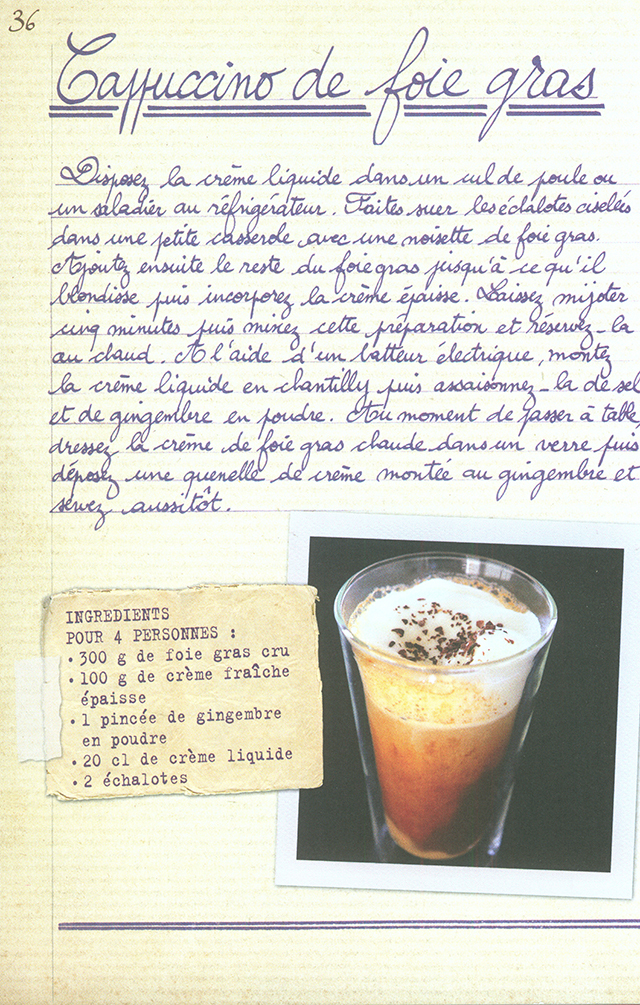 36
Cappuccino de foie gras
Disposez la crème liquide dans un cul de poule ou
un saladier au réfrigérateur. Faites suer les échalotes ciselées
dans une petite casserole avec une noisette de foie gras.
Ajoutez ensuite le reste du foie gras jusqu'à ce qu'il
blondisse puis incorporez la crème épaisse. Laissez mijoter
cinq minutes puis mixez cette préparation et réservez-la
au chaud. A l'aide d'un batteur électrique, montez
la crème liquide en chantilly puis assaisonnez-la de sel
et de gingembre en poudre. Au moment de passer à table,
dressez la crème de foie gras chaude dans un verre puis
déposez une quenelle de crème montée au gingembre et
servez aussitôt.
INGREDIENTS
POUR 4 PERSONNES :
• 300 g de foie gras cru
• 100 g de crème fraîche
épaisse
• 1 pincée de gingembre
en poudre
• 20 cl de crème liquide
• 2 échalotes